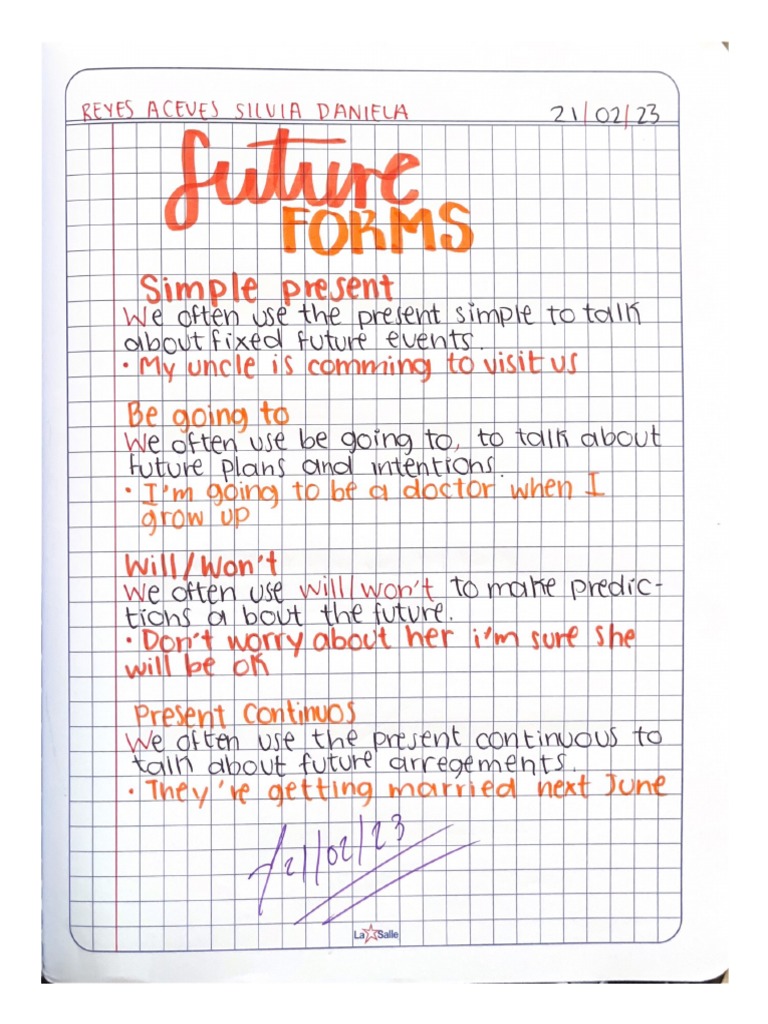 REYES ACEVES SILVIA DANIELA 21/02/23
future
FORMS
Simple present
We often use the present simple to talk
about fixed future events.
• My uncle is comming to visit us
Be going to
We often use be going to, to talk about
future plans and intentions.
• I'm going to be a doctor when I
grow up
Will/Won't
We often use will/won't to make predic-
tions a bout the future.
• Don't worry about her i'm sure she
will be ok
Present Continuos
We often use the present continuous to
talk about future arregements.
• They're getting married next June
21/02/23
La Salle